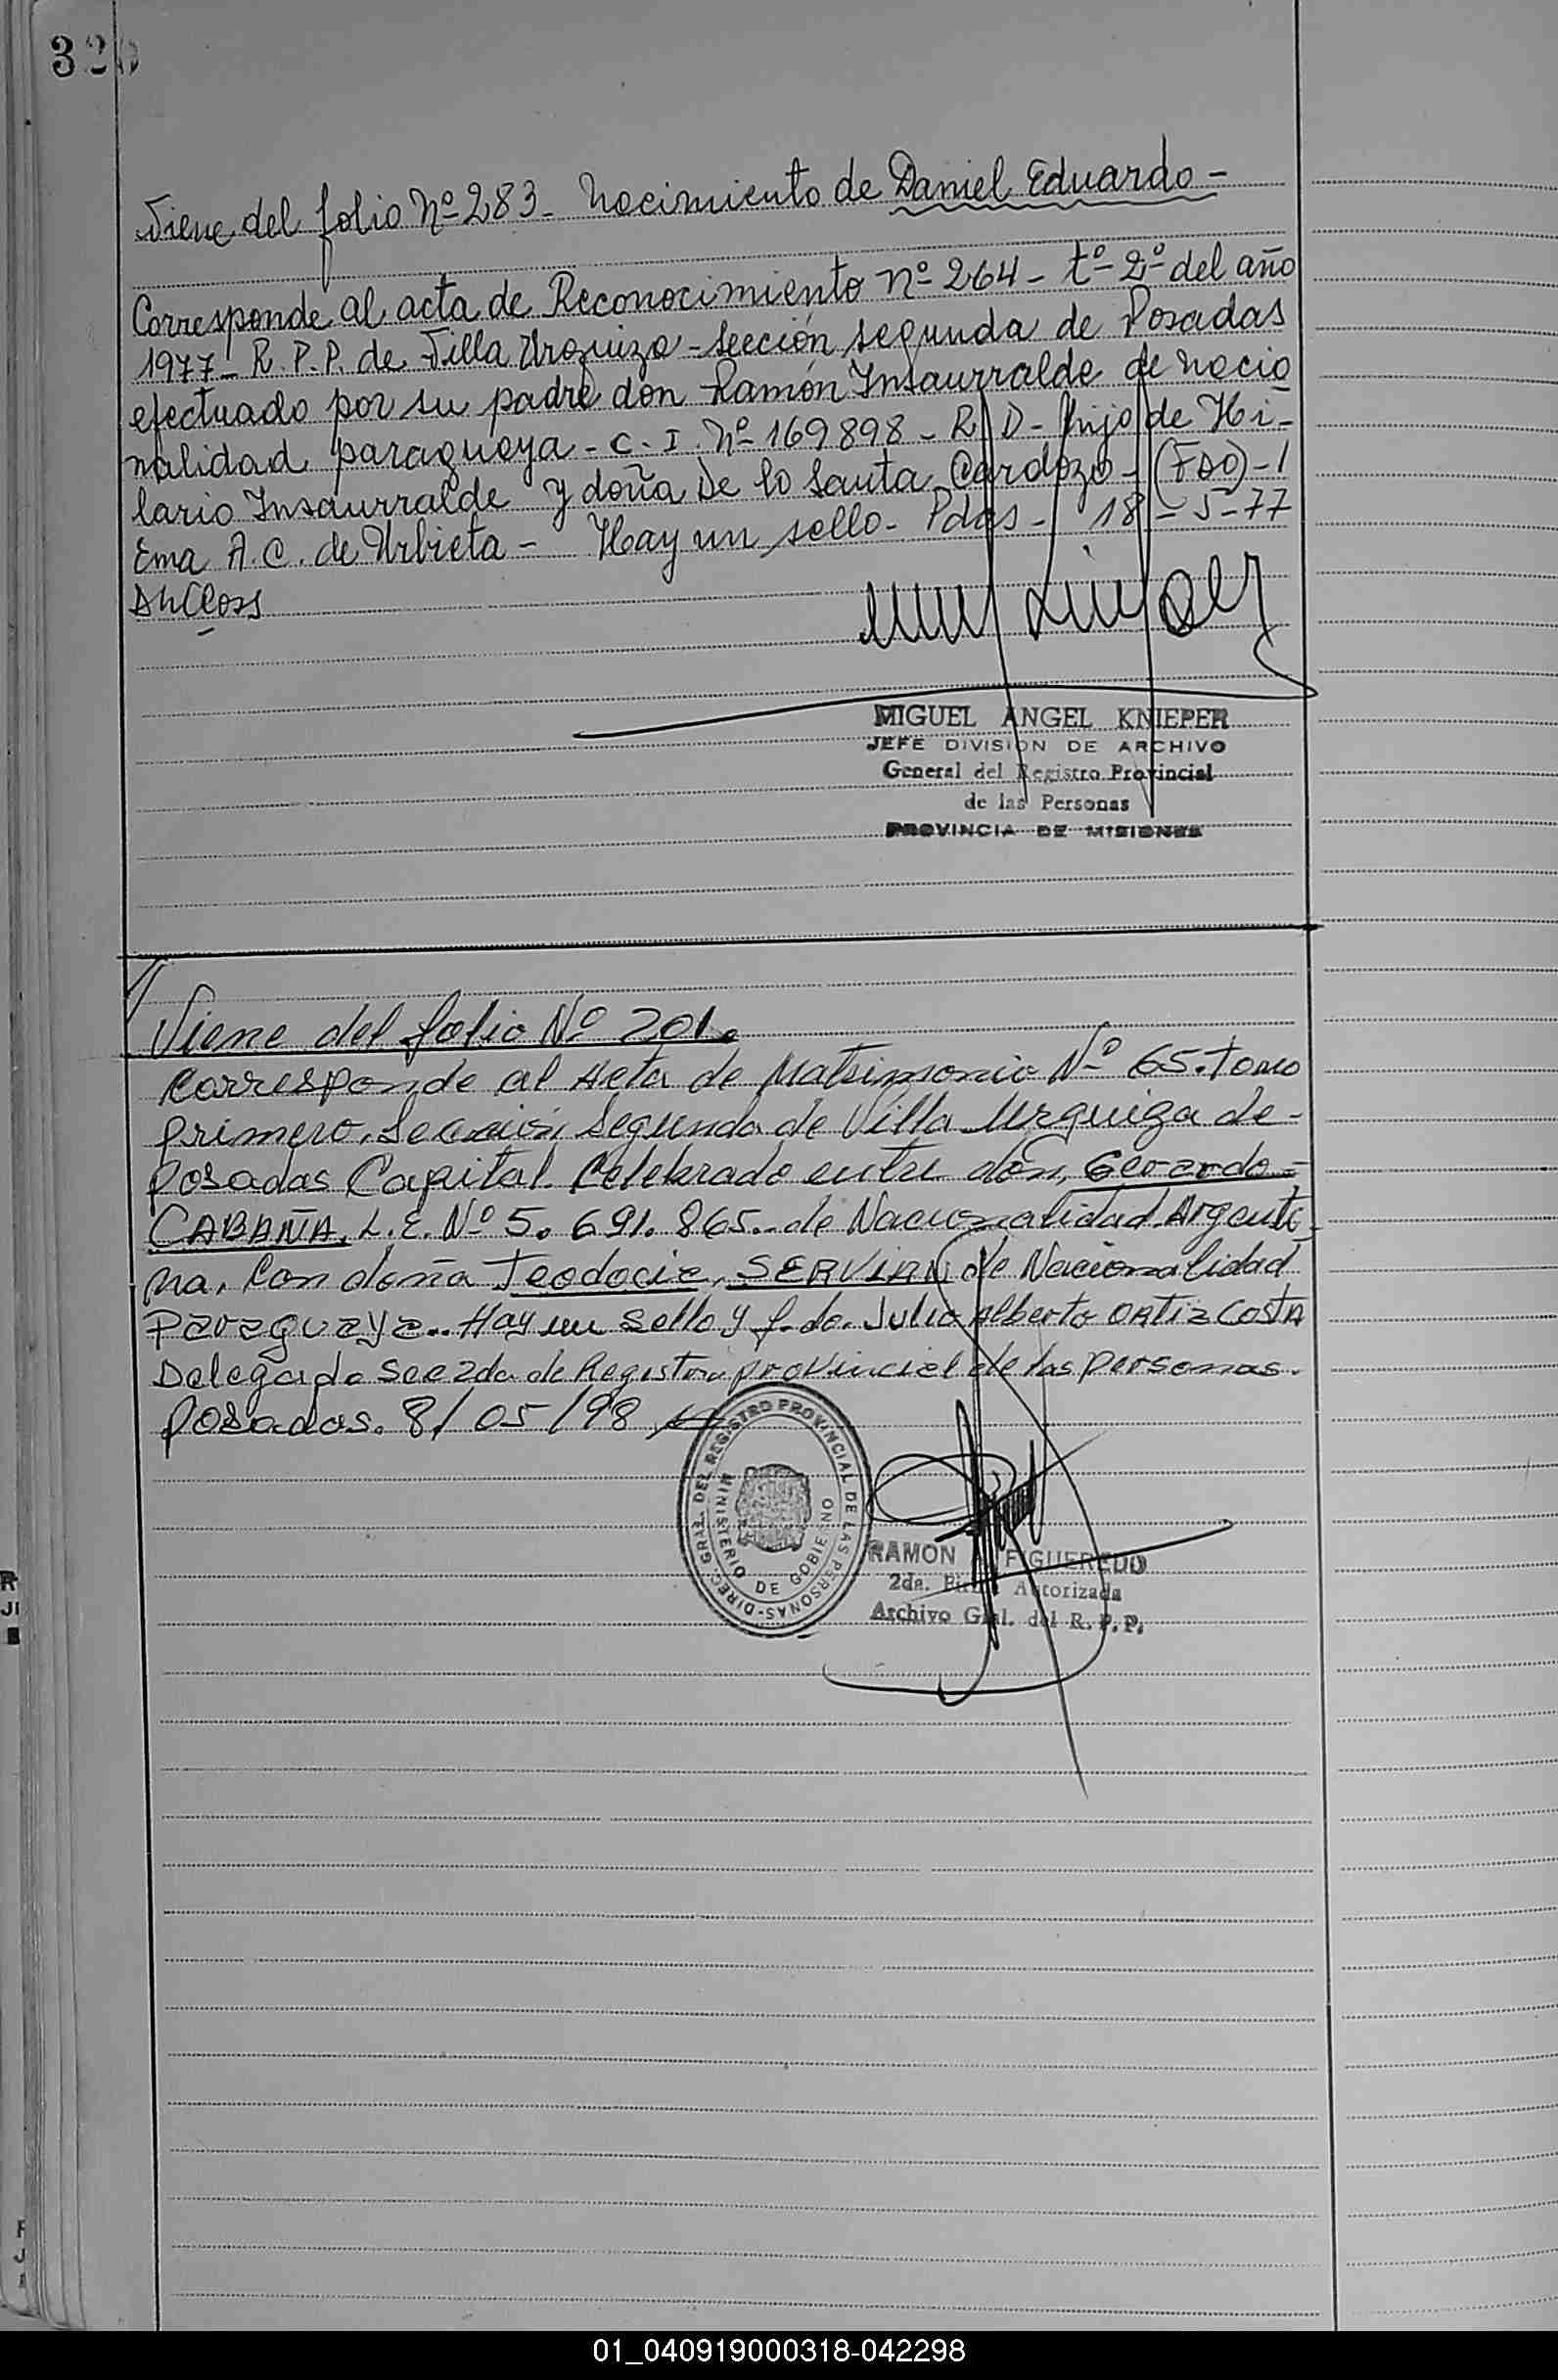 320
Viene del folio Nº 283 - Nacimiento de Daniel Eduardo -
Corresponde al acta de Reconocimiento nº 264 - tº - 2º del año
1977 - R. P. P. de Villa Urquiza - sección segunda de Posadas
efectuado por su padre don Ramón Insaurralde de nacio
nalidad paraguaya - C. I. Nº 169898 - R D - hijo de Hi-
lario Insaurralde y doña De la Santa Cardozo - (FDO) - 1
Ema A. C. de Urbieta - Hay un sello - Pdas - 18 - 5 - 77
MIGUEL ANGEL KNIEPER
JEFE DIVISION DE ARCHIVO
General del Registro Provincial
de las Personas
PROVINCIA DE MISIONES
Viene del folio Nº 201.
Corresponde al Acta de Matrimonio Nº 65. tomo
primero. Sección Segunda de Villa Urquiza de-
Posadas Capital. Celebrado entre don, Gerardo-
CABAÑA, L.E. Nº 5.691.865.. de Nacionalidad Argenti-
na, Con doña Teodocia, SERVIAN de Nacionalidad
Paraguaya.. Hay un sello y f.do. Julio Alberto ORTIZ COSTA
Delegado Sec 2da de Registro provincial de las personas.
Posadas. 8/05/98
DIREC. GRAL. DEL REGISTRO PROVINCIAL DE LAS PERSONAS-
MINISTERIO DE GOBIERNO
RAMON FIGUEREDO
2da. Autorizada
Archivo Gral. del R. P. P.
R
JI
F
J
01_040919000318-042298